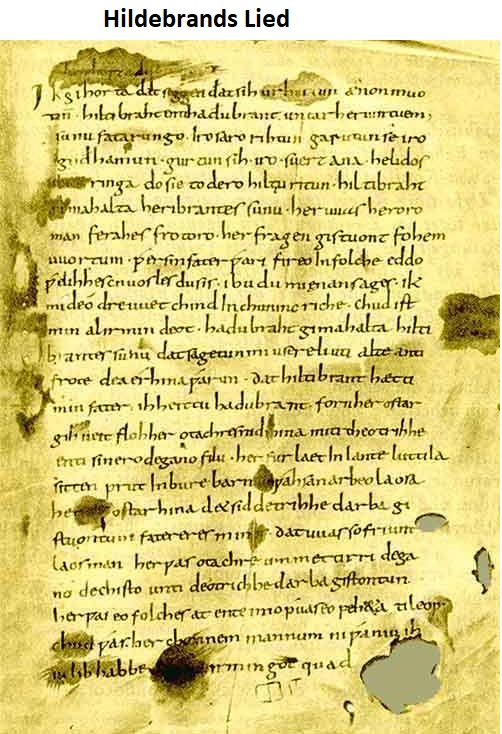 Hildebrands Lied
Ik gihorta dat seggen dat sih urhettun ænon muo
tin · hiltibraht enti hadubrant · untar heriun tuem ·
sunu fatarungo · iro saro rihtun garutun se iro
gudhamun · gurtun sih · iro · suert ana · helidos
ringa do sie to dero hiltiu ritun · hiltibraht
gimahalta heribrantes sunu · her uuas heroro
man ferahes frotoro · her fragen gistuont fohem
uuortum · ƿer sin fater ƿari fireo In folche eddo
ƿelihhes cnuosles du sis · ibu du mi enan sages · ik
mi deo dre uuet chind In chuninc riche · chud ist
min al irmin deot · hadubraht gimahalta hilti
brantes sunu dat sagetun mi usere liuti alte anti
frote dea erhina ƿarun · dat hiltibrant hætti
min fater · ih heittu hadubrant · forn her ostar
gihueit floh her otachres nid hina miti theotrihhe
enti sinero degano filu · her fur laet In lante luttila
sitten prut In bure barn unƿahsan arbeo laosa
ostar hina det sid detrihhe darba gi
stuontum fatereres mines · dat uuas so friunt
laos man her ƿas otachre ummet tirri dega
no dechisto unti deotrichhe darba gistontun
her ƿas eo folches at ente imo ƿuas eo peheta ti leop
chud ƿas her chonnem mannum ni ƿaniu ih
iu lib habbe irmingot quad